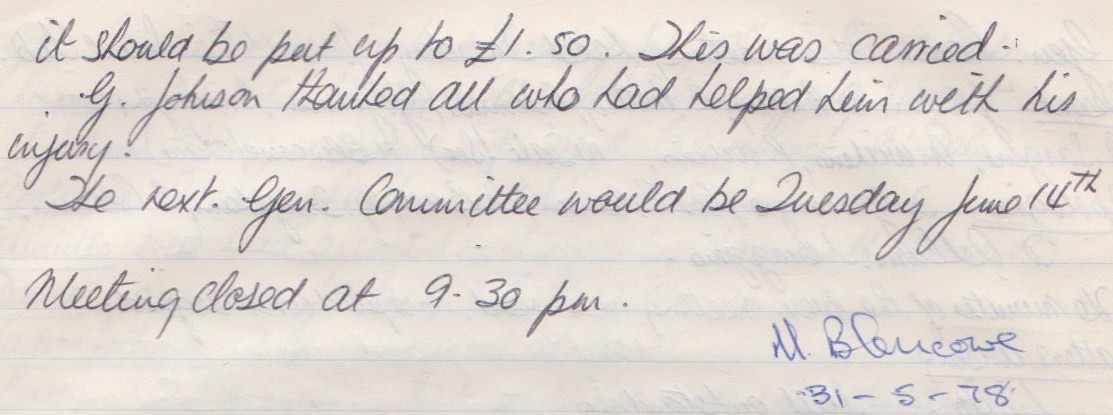 it should be put up to £1.50. This was carried.
G. Johnson thanked all who had helped him with his
injury.
The next. Gen. Committee would be Tuesday June 14th
Meeting closed at 9.30 pm.
M. Blencowe
31-5-78